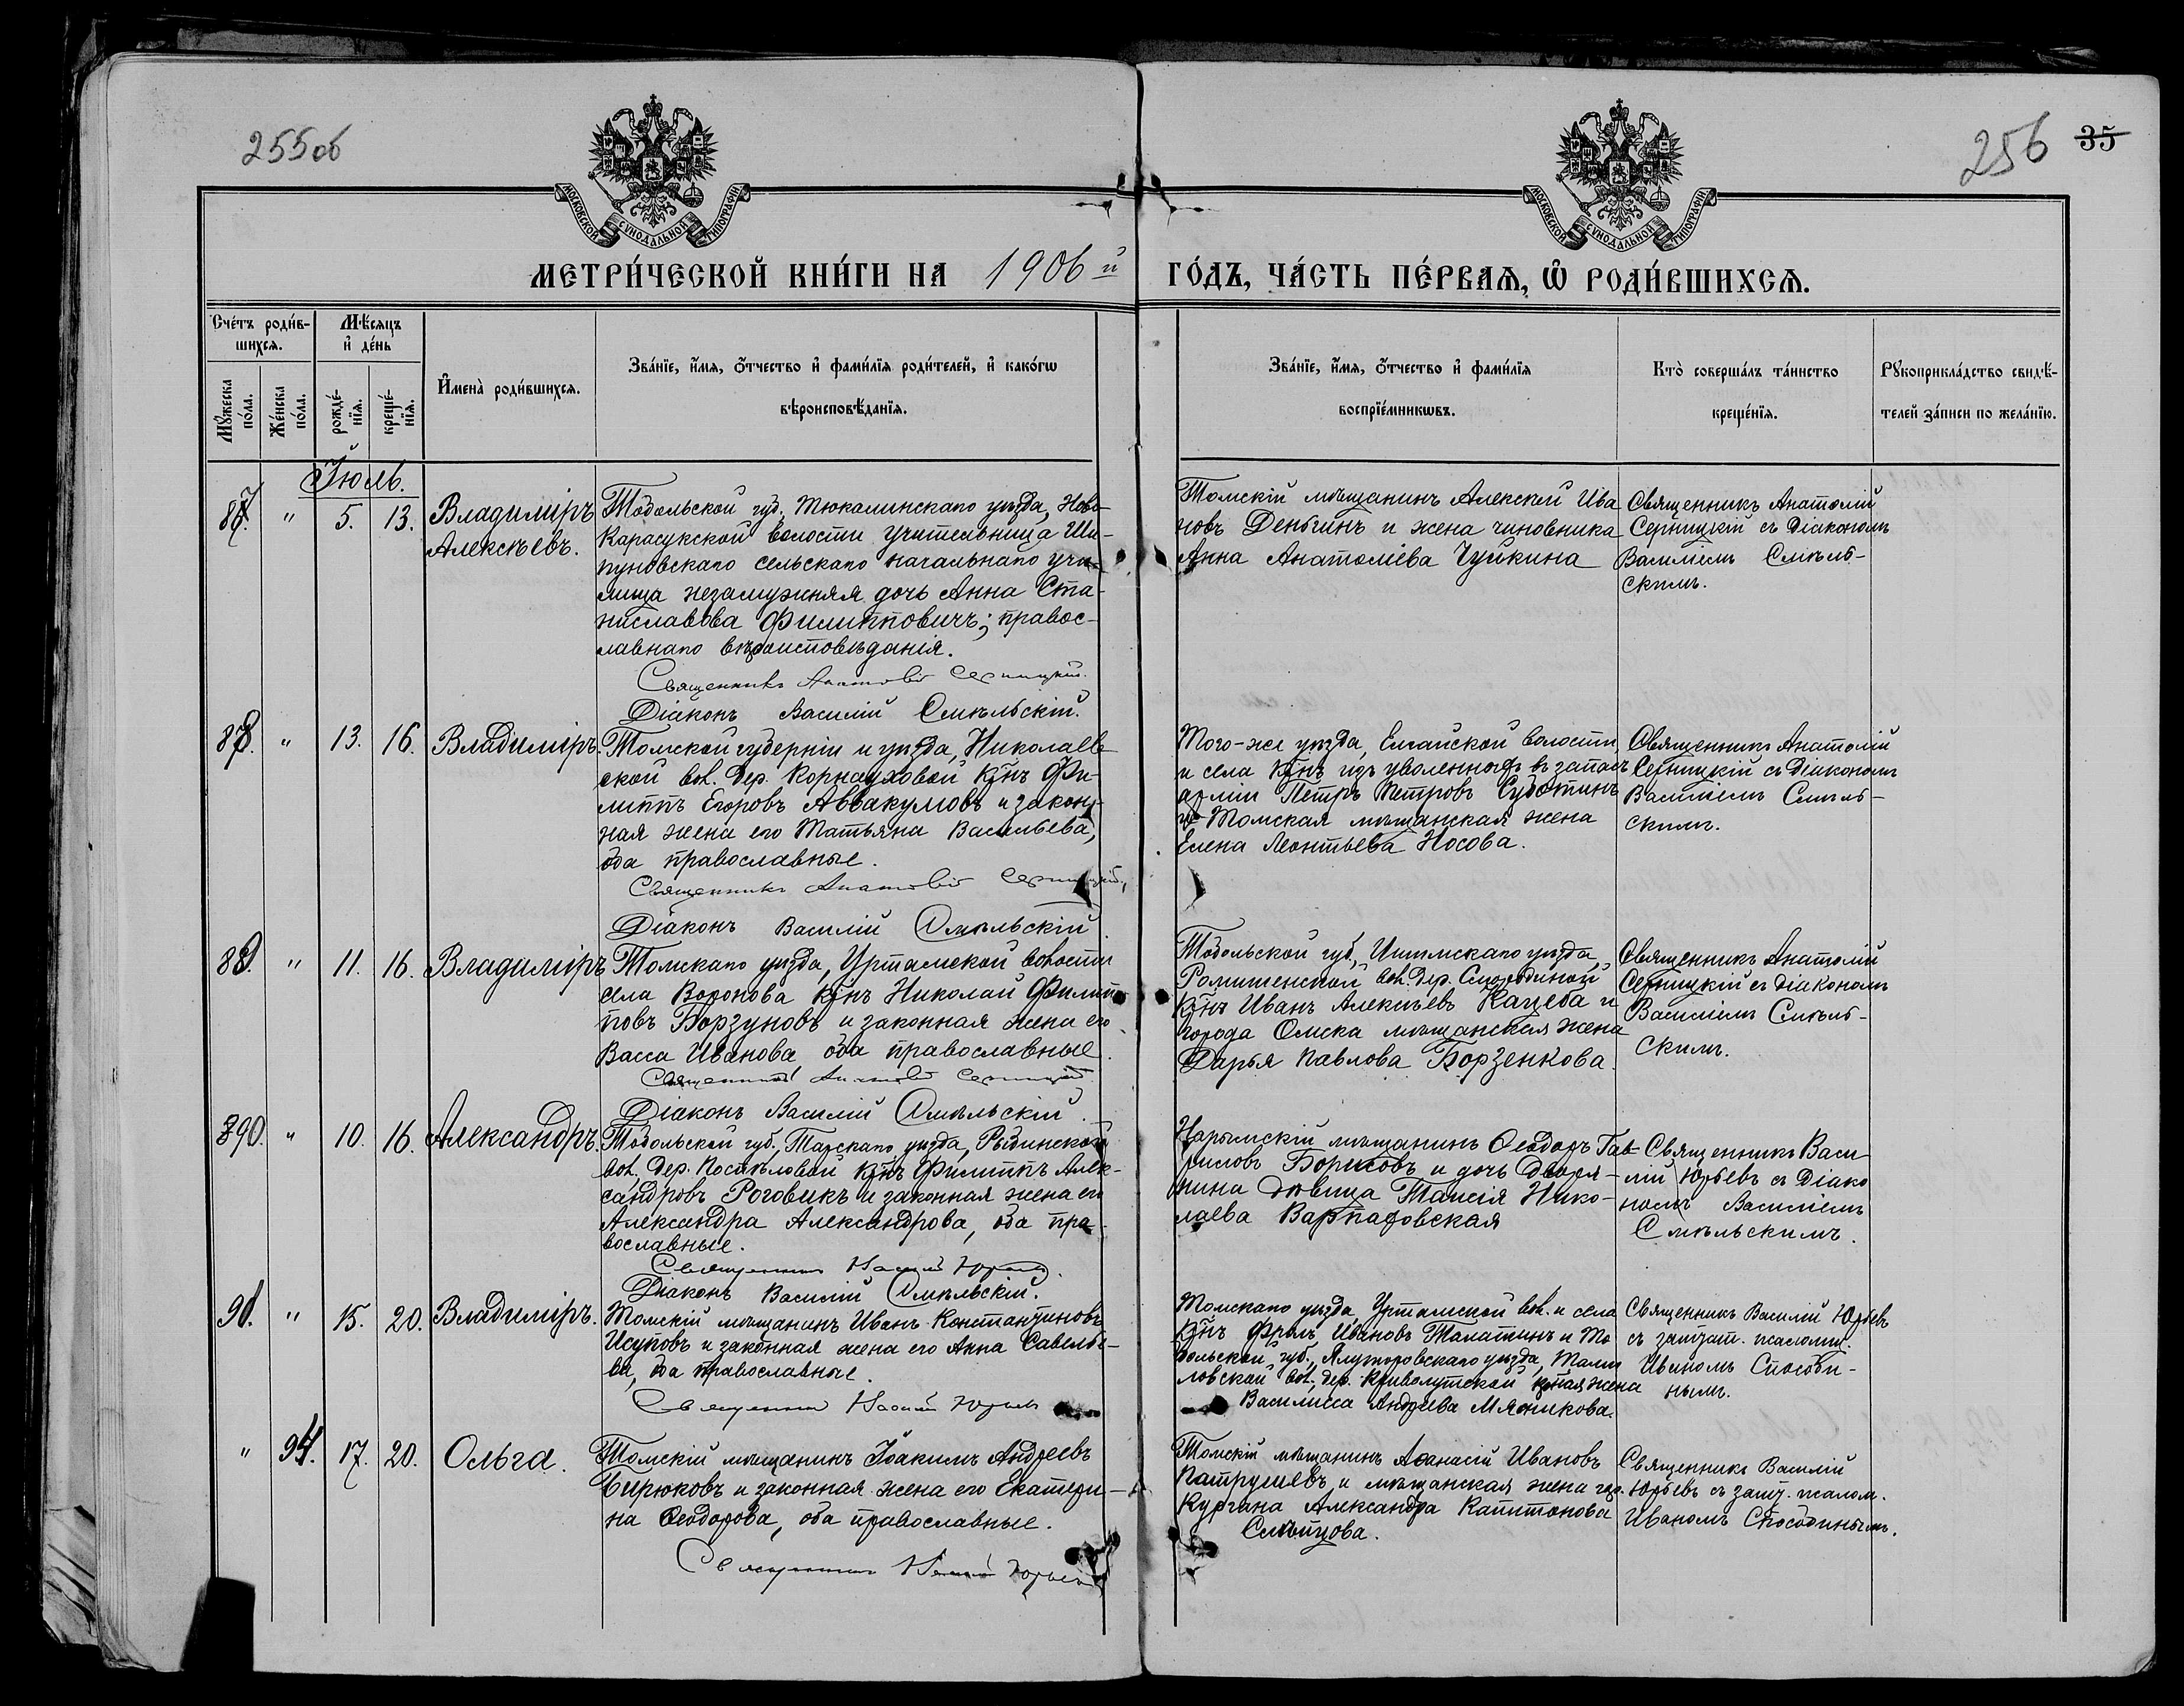 255об
256 35
МОСКОВСКОЙ СѴНОДАЛЬНОЙ ТИПОГРАФІИ
МОСКОВСКОЙ СѴНОДАЛЬНОЙ ТИПОГРАФІИ
МЕТРИ́ЧЕСКОЙ КНИ́ГИ НА 1906й
ГО́ДЪ, ЧА́СТЬ ПЕ́РВАѦ, Ѽ РОДИ́ВШИХСѦ.
Сче́тъ роди́в-
шихсѧ.
Мꙋ́жеска по́ла.
Же́нска по́ла.
Мѣ́сяцъ
и҆ де́нь
рожде́-нїѧ.
креще́-нїѧ.
И҆мена̀ роди́вшихсѧ.
Зва́нїе, и҆́мѧ, ѻ҆́тчество и҆ фами́лїѧ роди́телей, и҆ како́гѡ
вѣроисповѣ́данїѧ.
Зва́нїе, и҆́мѧ, ѻ҆́тчество и҆ фами́лїѧ
воспрїе́мникѡвъ.
Кто̀ соверша́лъ та́инство
креще́нїѧ.
Рꙋкоприкла́дство свидѣ́-
телей за́писи по жела́нїю.
Іюль.
87. " 5. 13. Владиміръ
Алексѣевъ.
Тобольской губ. Тюкалинскаго уѣзда, Ново-
Карасукской волости учительница Ши-
пуновскаго сельскаго начальнаго учи-
лища незамужняя дочь Анна Ста-
ниславова Филипповичъ; правос-
лавнаго вѣроисповѣданія.
Священникъ Анатолій Серницкій.
Діаконъ Василій Смѣльскій.
Томскій мѣщанинъ Алексей Ива
новъ Деньгинъ и жена чиновника
Анна Анатоліева Чуйкина
Священникъ Анатолій
Серницкій съ Діакономъ
Василіемъ Смѣль-
скимъ.
88. " 13. 16. Владиміръ.
Томской губерніи и уѣзда, Николаев
ской вол. дер. Корнауховой кр̃нъ Фи-
липпъ Егоровъ Аввакумовъ и закон-
ная жена его Татьяна Васильева,
оба православные.
Священникъ Анатолій Серницкій,
Діаконъ Василій Смѣльскій.
Того-же уѣзда, Елгайской волости,
и села кр̃нъ изъ уволенныхъ въ запасъ
арміи Петръ Петровъ Суботинъ
и Томская мѣщанская жена
Елена Леонтьева Носова.
Священникъ Анатолій
Серницкій съ Діакономъ
Василіемъ Смѣль-
скимъ.
89. " 11. 16. Владиміръ
Томскаго уѣзда, Уртамской волости
села Воронова кр̃нъ Николай Филип
повъ Борзуновъ и законная жена его
Васса Иванова оба православные.
Священникъ Анатолій Серницкій
Діаконъ Василій Смѣльскій.
Тобольской губ., Ишимскаго уѣзда,
вол. дер. Смородиной
кр̃нъ Иванъ Алексѣевъ Кацеба и
города Омска мѣщанская жена
Дарья Павлова Борзенкова.
Священникъ Анатолій
Серницкій съ Діакономъ
Василіемъ Смѣль-
скимъ.
90. " 10. 16. Александръ.
Тобольской губ., Тарскаго уѣзда, Рыбинской
вол. дер. кр̃нъ Филиппъ Алек-
сандровъ Роговикъ и законная жена его
Александра Александрова, оба пра-
вославные.
Священникъ Василій Юрьевъ.
Діаконъ Василій Смѣльскій.
Нарымскій мѣщанинъ Ѳеодоръ Гав-
риловъ Борисовъ и дочь Дворя-
нина дѣвица Таисія Нико-
лаева Варпаховская
Священникъ Васи-
лій Юрьевъ съ Діако
номъ Василіемъ
Смѣльскимъ.
91. " 15. 20. Владиміръ.
Томскій мѣщанинъ Иванъ Константиновъ
Исуповъ и законная жена его Анна Савелье-
ва, оба православные.
Священникъ Василій Юрьевъ
Томскаго уѣзда, Уртамской вол. и села
кр̃нъ Фролъ Ивановъ Талашинъ и То
больской губ., Ялуторовскаго уѣзда,
ловской вол., дер. Криволуцкой кр̃ная жена
Василисса Андреева Мясникова.
Священникъ Василій Юрьевъ
съ заштат. псаломщ.
Иваномъ Способи-
нымъ.
" 94. 17. 20. Ольга.
Томскій мѣщанинъ Іоакимъ Андреевъ
Бирюковъ и законная жена его Екатери-
на Ѳеодорова, оба православные.
Священникъ Василій Юрьевъ
Томскій мѣщанинъ Аѳанасій Ивановъ
Патрушевъ и мѣщанская жена гор.
Кургана Александра Капитонова
Слѣпцова.
Священникъ Василій
Юрьевъ съ зашт. псалом.
Иваномъ Способинымъ.